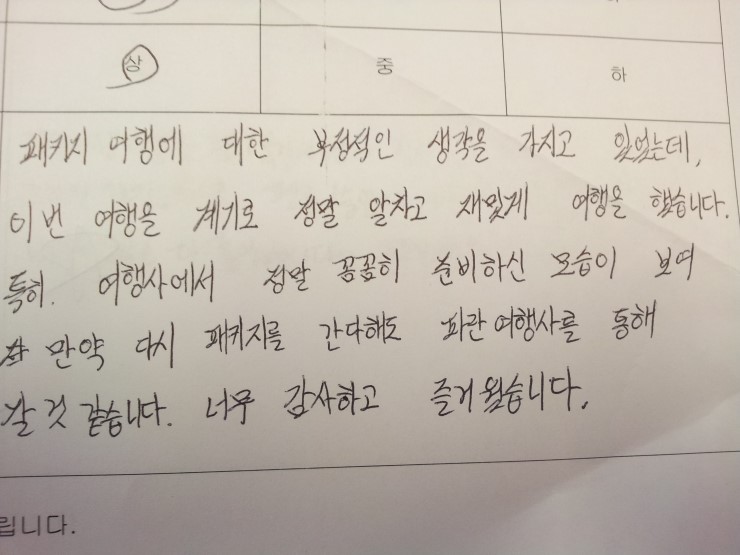 상 중 하
패키지 여행에 대한 부정적인 생각을 가지고 있었는데,
이번 여행을 계기로 정말 알차고 재밌게 여행을 했습니다.
특히. 여행사에서 정말 꼼꼼히 준비하신 모습이 보여
만약 다시 패키지를 간다해도 파란여행사를 통해
갈 것 같습니다. 너무 감사하고 즐거웠습니다.
립니다.